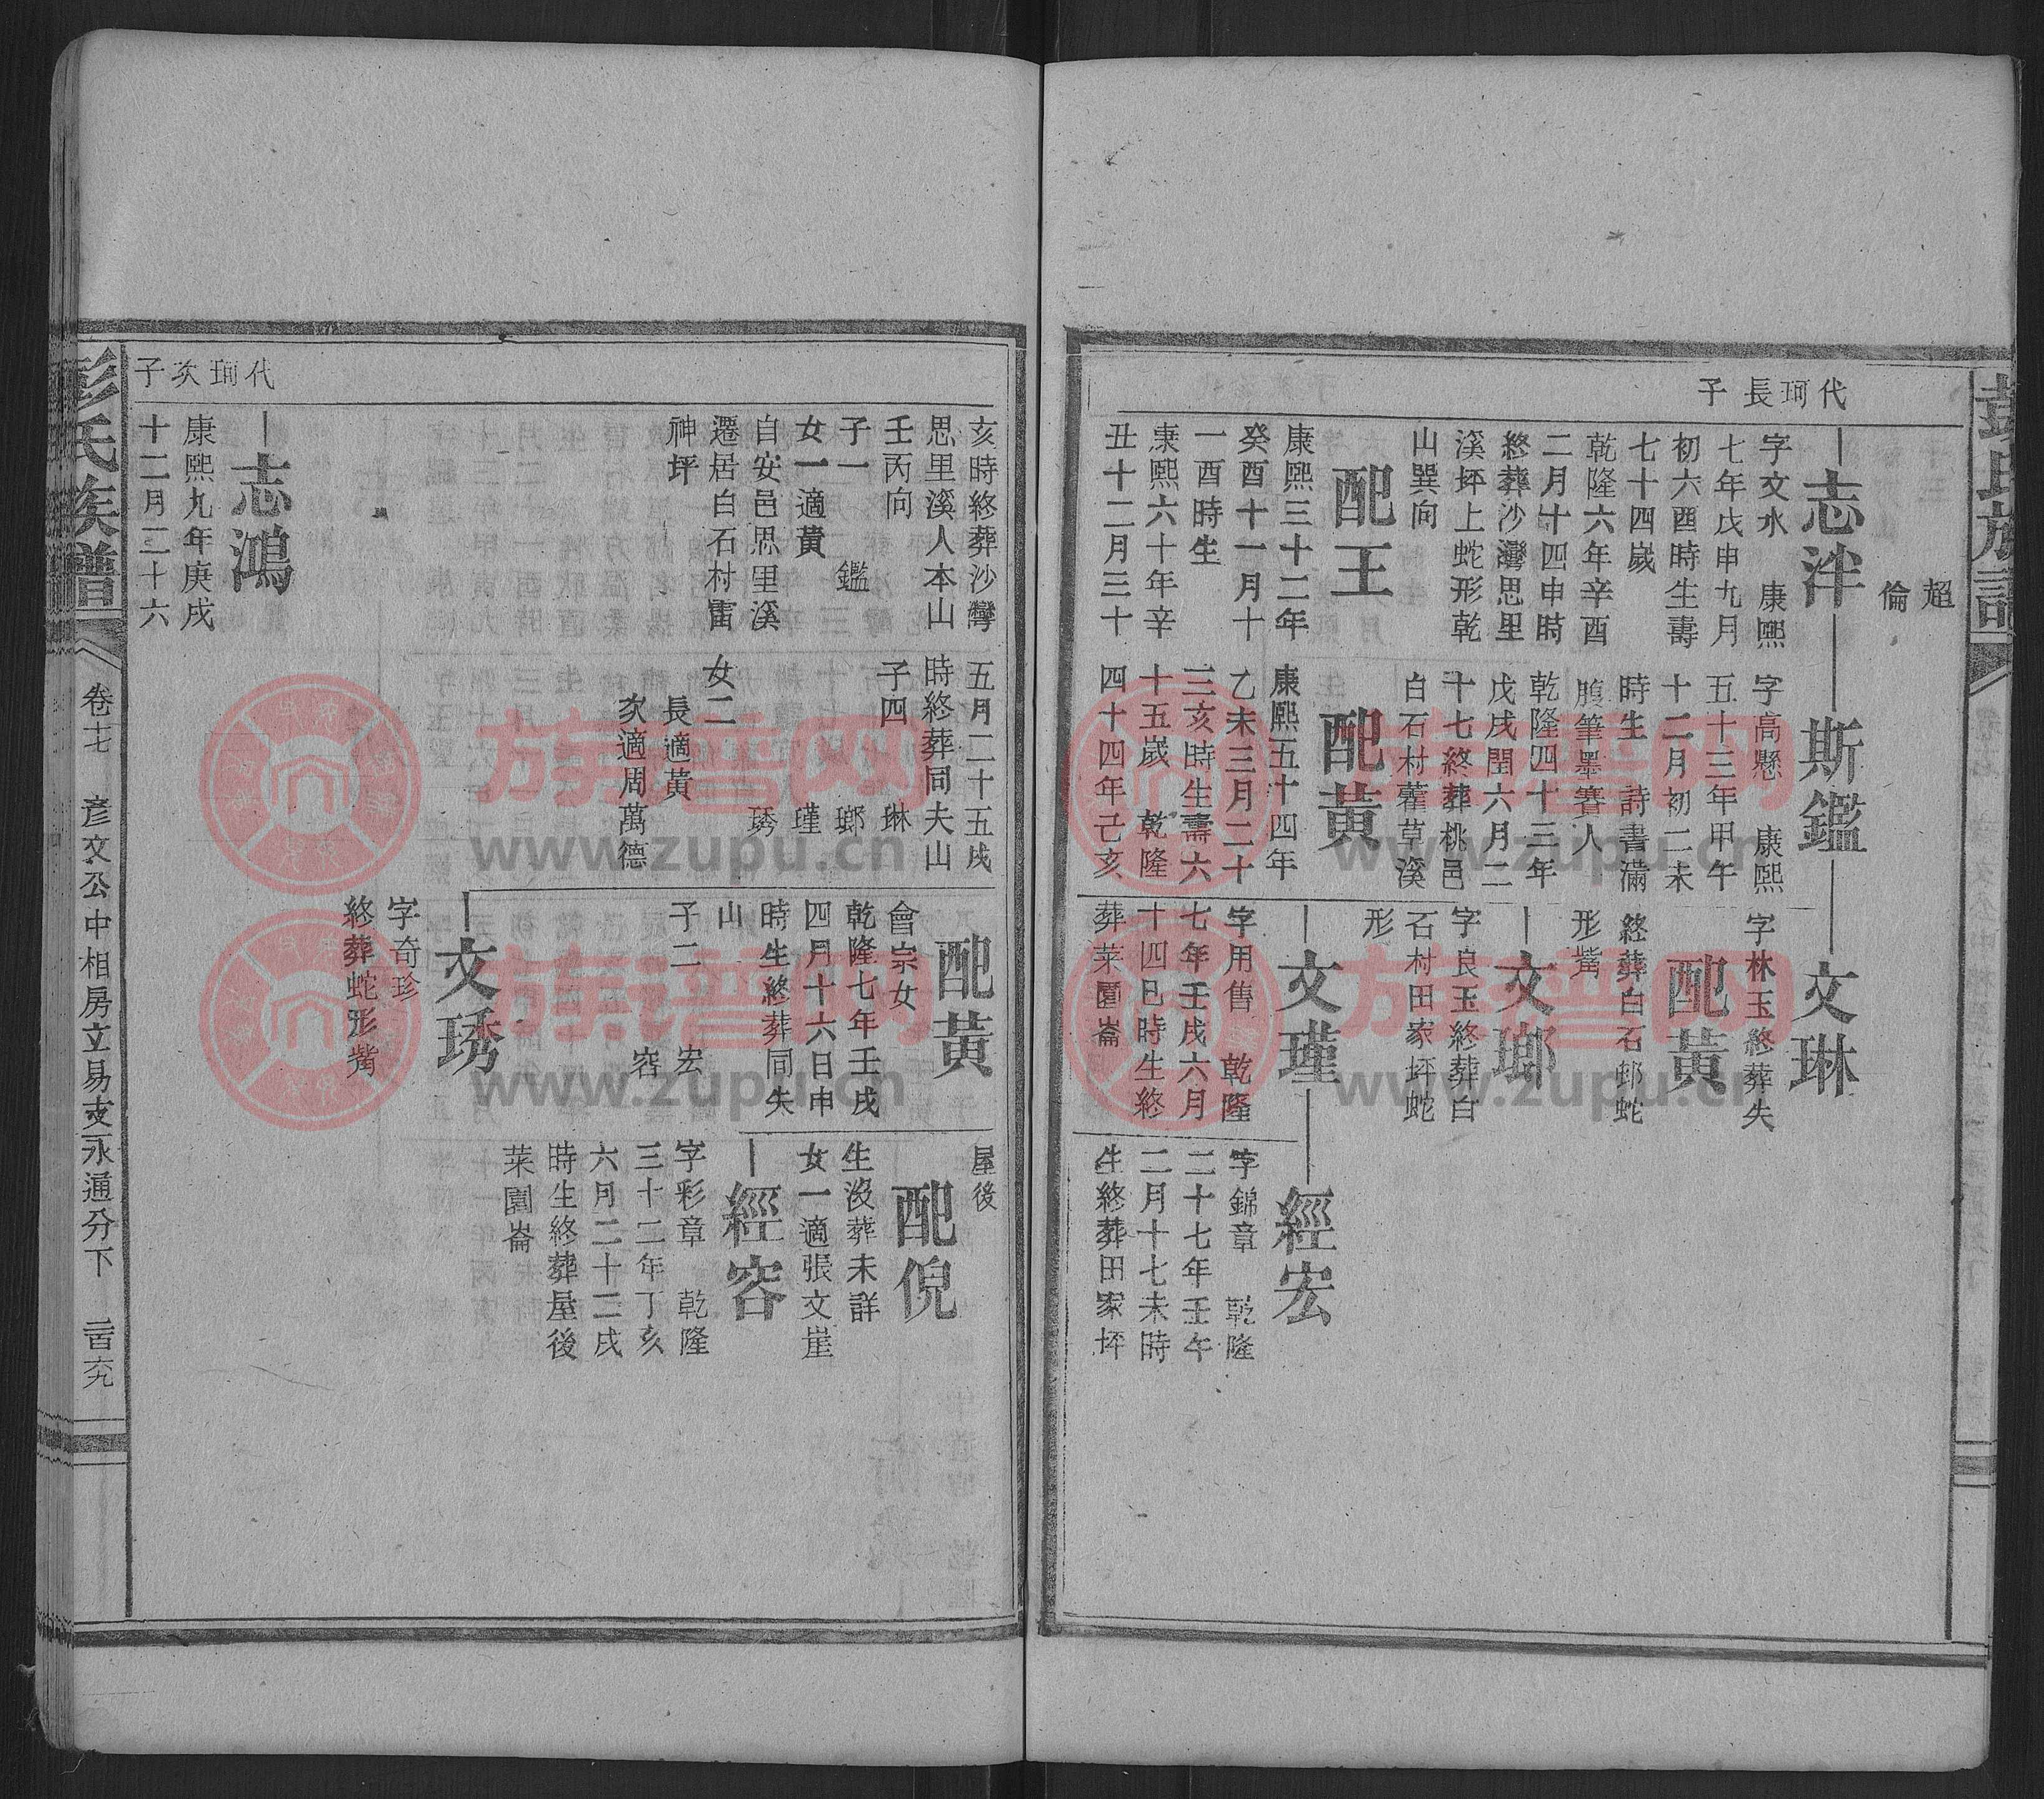 彭氏族譜
代珂長子
超
倫
志泮
字文水 康熙
七年戊申九月
初六酉時生壽
七十四歲
乾隆六年辛酉
二月十四申時
終葬沙灣思里
溪坪上蛇形乾
山巽向
配王
康熙三十二年
癸酉十一月十
一酉時生
康熙六十年辛
丑十二月三十
斯鑑
字高懸 康熙
五十三年甲午
十二月初二未
時生 詩書滿
腹筆墨賽人
乾隆四十三年
戊戌閏六月二
十七終葬桃邑
白石村藿草溪
配黃
康熙五十四年
乙未三月二十
三亥時生壽六
十五歲 乾隆
四十四年己亥
文琳
字林玉終葬失
配黃
終葬白石邨蛇
形嘴
文瑯
字良玉終葬白
石村田家坪蛇
形
文瑾
字用售 乾隆
七年壬戌六月
十四巳時生終
葬菜園崙
經宏
字錦章 乾隆
二十七年壬午
二月十七未時
生終葬田家坪
亥時終葬沙灣
思里溪人本山
壬丙向
子一 鑑
女一適黃
自安邑思里溪
遷居白石村雷
神坪
五月二十五戌
時終葬同夫山
子四 琳
瑯
瑾
琇
女二
長適黃
次適周萬德
配黃
會宗女
乾隆七年壬戌
四月十六日申
時生終葬同失
山
子二 宏
容
屋後
配倪
生沒葬未詳
女一適張文崖
經容
字彩章 乾隆
三十二年丁亥
六月二十二戌
時生終葬屋後
菜園崙
文琇
字奇珍
終葬蛇形嘴
代珂次子
志鴻
康熙九年庚戌
十二月二十六
彭氏族譜
卷十七 彥文公中相房立易支永通分下
族譜网
www.zupu.cn
族譜网
www.zupu.cn
族譜网
www.zupu.cn
族譜网
www.zupu.cn